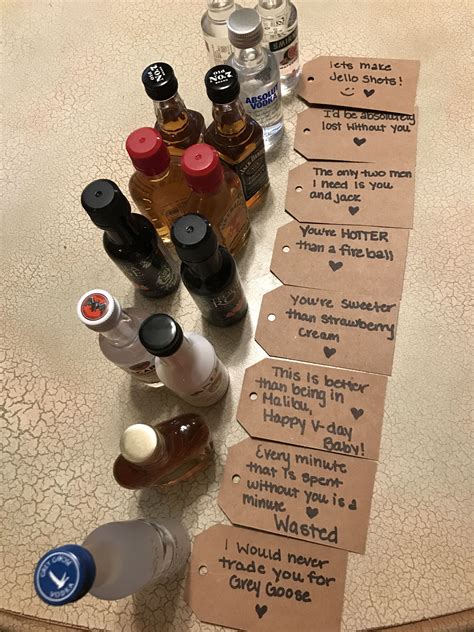 lets make
Jello Shots!
I'd be absolutely
lost without you
The only two men
I need is you
and jack
You're HOTTER
than a fireball
You're sweeter
than strawberry
Cream
This is better
than being in
Malibu,
Happy V-day
Baby!
Every minute
that is spent
without you is a
minute
Wasted
I would never
trade you for
Grey Goose
ABSOLUT
VODKA
OLD
No. 7
OLD
No. 7
GREY GOOSE
VODKA